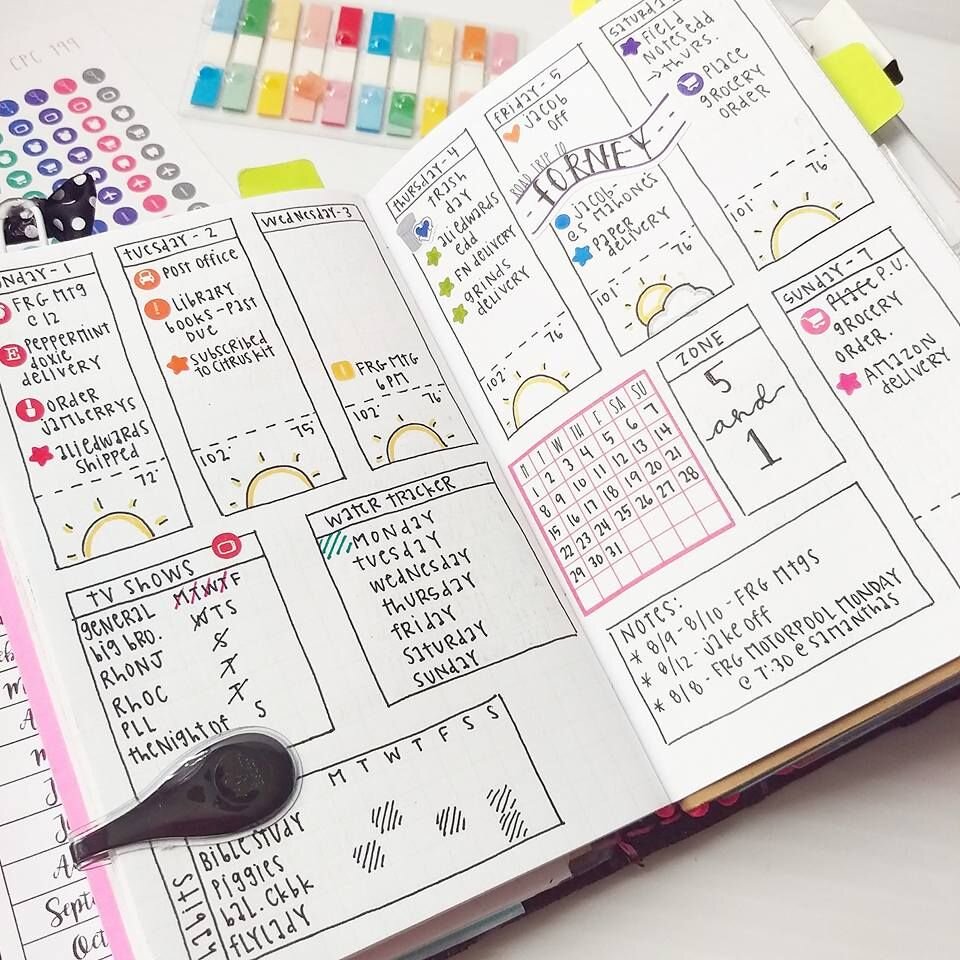 CPC 199
TUESDAY-2
POST OFFICE
! LIBRARY
BOOKS-PAST
DUE
SUBSCRIBED
TO CITRUS KIT
102° 75°
WEDNESDAY-3
FRG MTG
6PM
102° 76°
-1
FRG MTG
@ 12
E PEPPERMINT
DOXIE
DELIVERY
ORDER
JAMBERRYS
ALIEDWARDS
SHIPPED
72°
TV SHOWS
GENERAL MTWTF
BIG BRO. WTS
RHONJ S
RHOC T
PLL T
THE NIGHT OF S
WATER TRACKER
MONDAY
TUESDAY
WEDNESDAY
THURSDAY
FRIDAY
SATURDAY
SUNDAY
M T W T F S S
BIBLE STUDY
PIGGIES
BAL. CKBK
FLYLADY
THURSDAY-4
TRASH
DAY
ALIEDWARDS
EDD
FN DELIVERY
GRINDS
DELIVERY
102° 76°
FRIDAY-5
JACOB
OFF
ROAD TRIP TO
FORNEY
JACOB-
@5 MAHONE'S
PAPER
DELIVERY
101° 76°
FIELD
NOTES EDD
→ THURS.
PLACE
GROCERY
ORDER
101° 76°
SUNDAY-7
PLACE P.U.
GROCERY
ORDER.
AMAZON
DELIVERY
M T W TH F SA SU
1 2 3 4 5 6 7
8 9 10 11 12 13 14
15 16 17 18 19 20 21
22 23 24 25 26 27 28
29 30 31
ZONE
5
and
1
NOTES:
* 8/9-8/10-FRG MTGS
* 8/12-JAKE OFF
* 8/8-FRG MOTORPOOL MONDAY
@ 7:30 @ SAMANTHAS
Sept
Oct